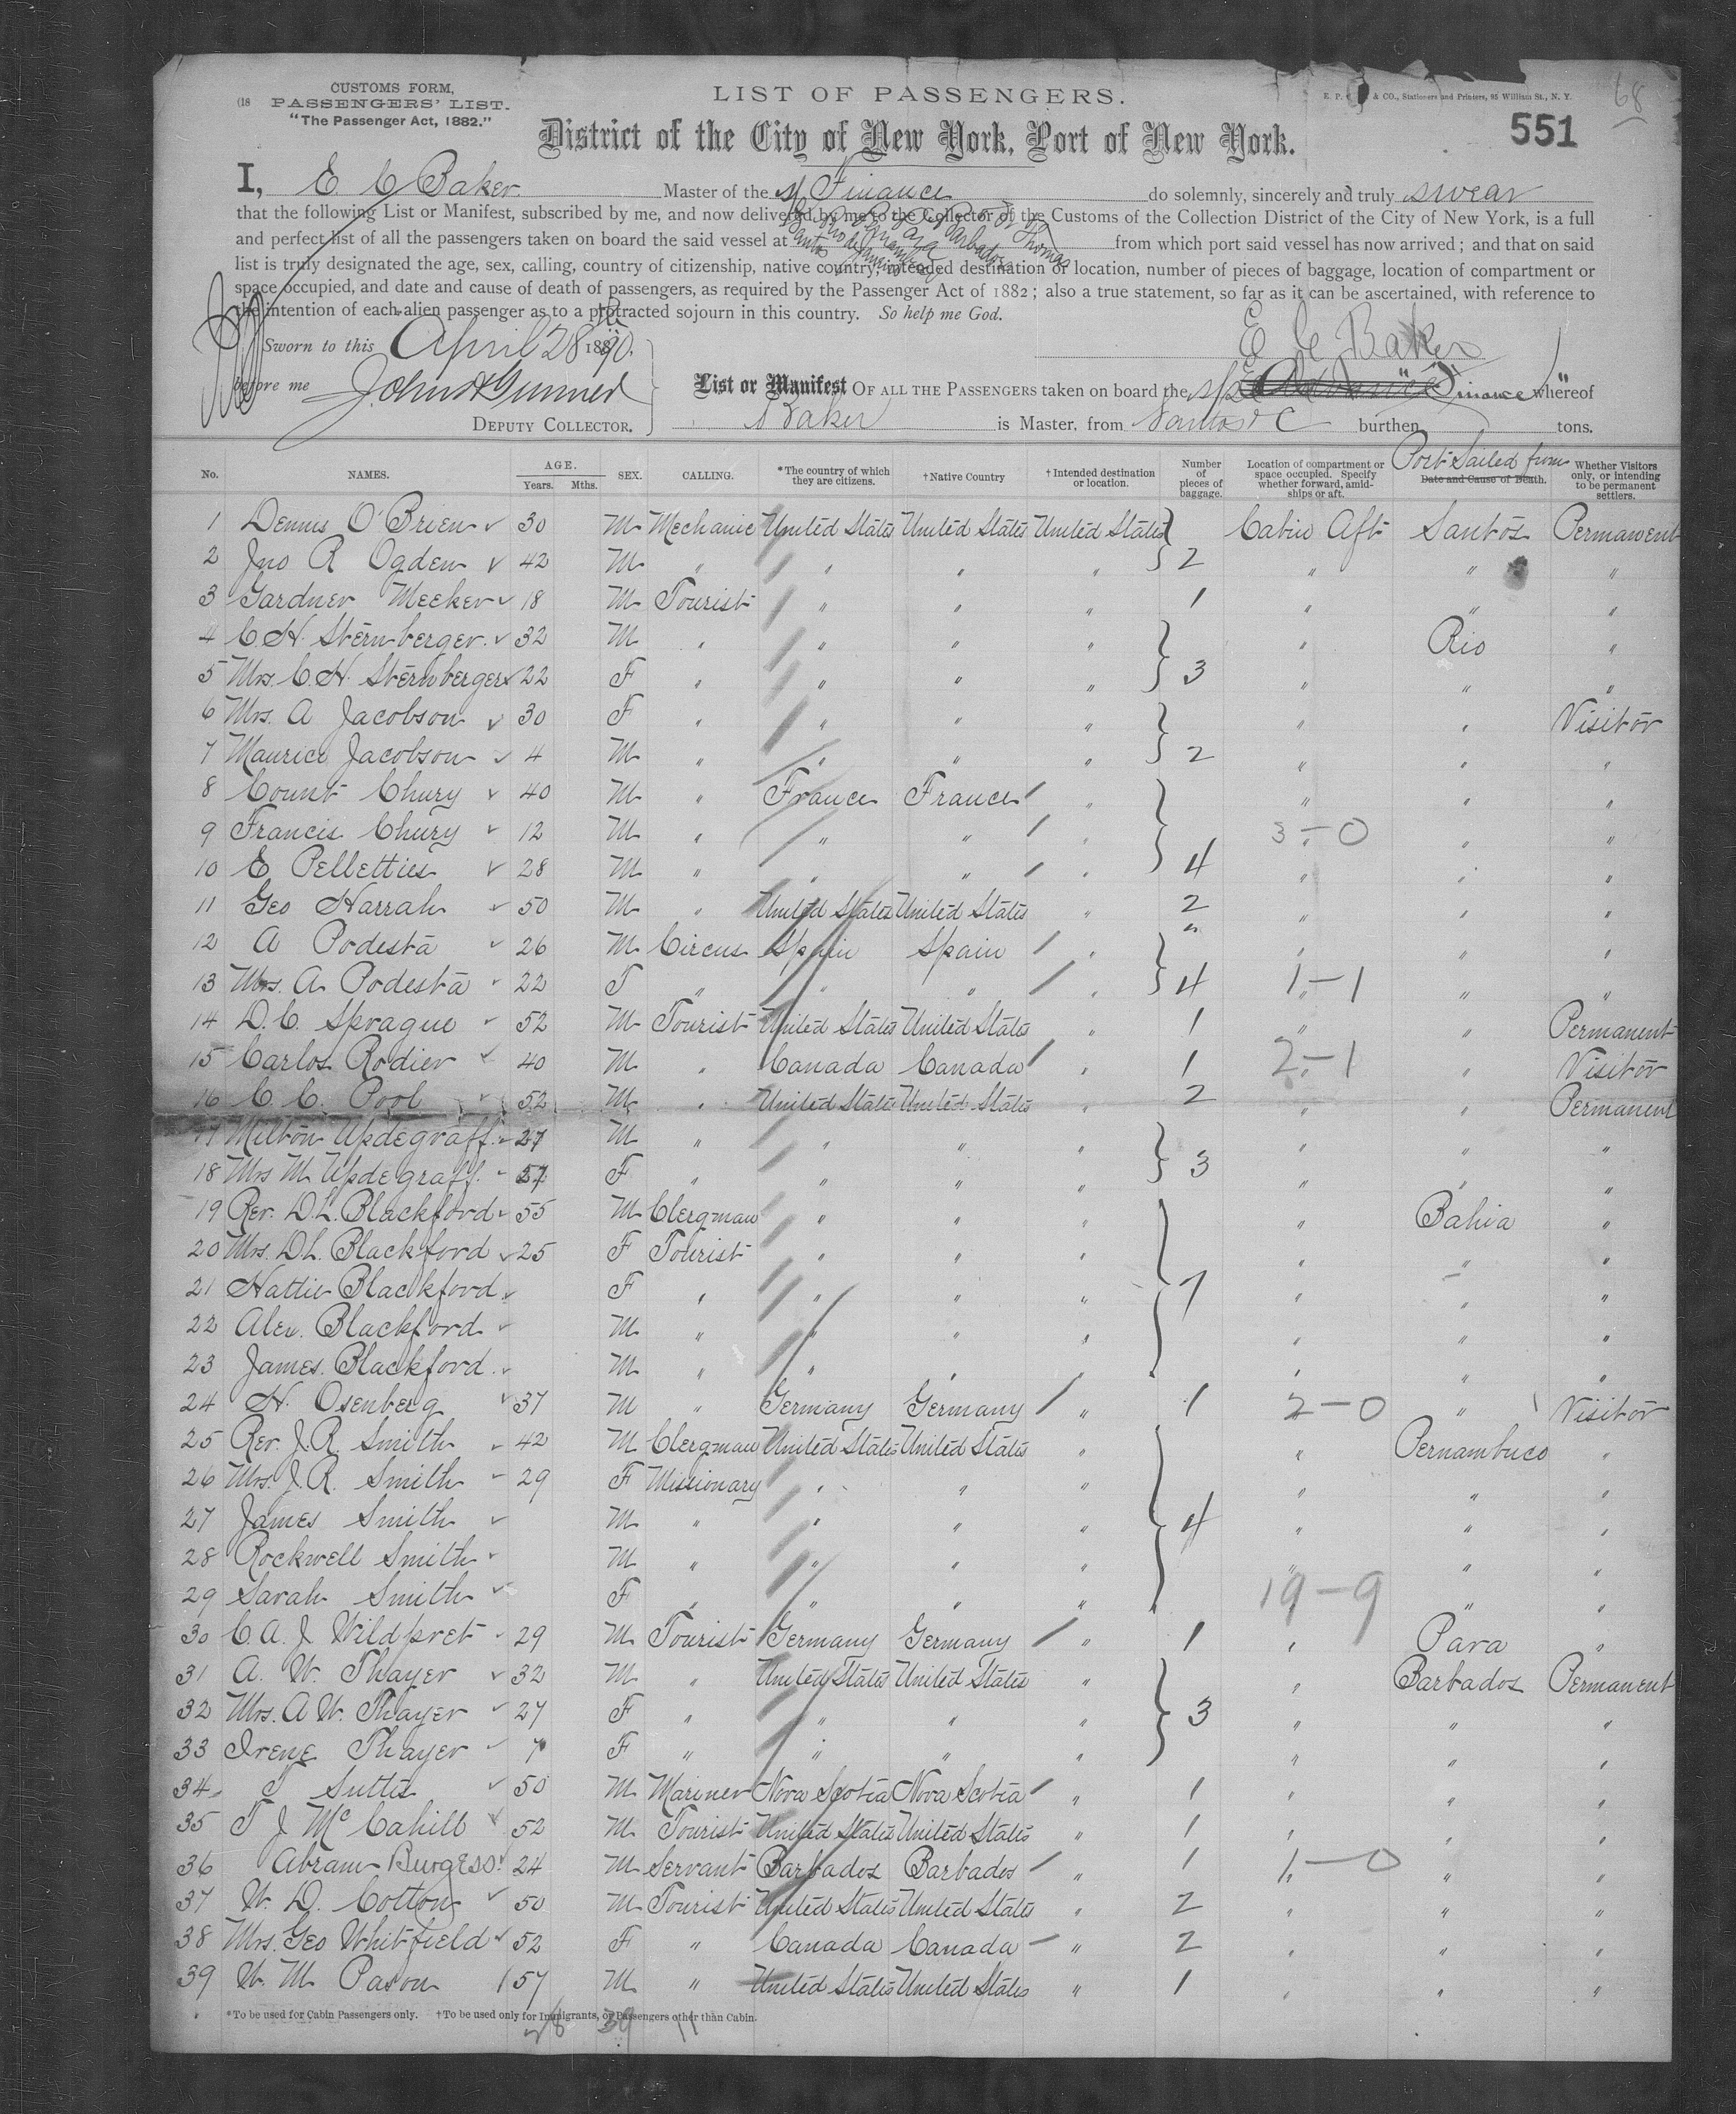 CUSTOMS FORM,
(18 PASSENGERS' LIST.
"The Passenger Act, 1882."
LIST OF PASSENGERS.
& CO., Stationers and Printers, 95 William St., N. Y.
68
551
District of the City of New York, Port of New York.
I, E. C Baker Master of the S/S Finance do solemnly, sincerely and truly swear
that the following List or Manifest, subscribed by me, and now delivered by me to the Collector of the Customs of the Collection District of the City of New York, is a full
and perfect list of all the passengers taken on board the said vessel at Santos Rio de Janeiro Para Barbados St Thomas from which port said vessel has now arrived; and that on said
list is truly designated the age, sex, calling, country of citizenship, native country, intended destination or location, number of pieces of baggage, location of compartment or
space occupied, and date and cause of death of passengers, as required by the Passenger Act of 1882; also a true statement, so far as it can be ascertained, with reference to
the intention of each alien passenger as to a protracted sojourn in this country. So help me God.
Sworn to this April 28th 1890. E C Baker
before me
DEPUTY COLLECTOR.
List or Manifest OF ALL THE PASSENGERS taken on board the S/S Finance whereof
Baker is Master, from Santos &C burthen tons.
No. NAMES. AGE. Years. Mths. SEX. CALLING. *The country of which they are citizens. †Native Country †Intended destination or location. Number of pieces of baggage. Location of compartment or space occupied. Specify whether forward, amidships or aft. Port Sailed from Date and Cause of Death. Whether Visitors only, or intending to be permanent settlers.
1 Dennis O'Brien 30 M Mechanic United States United States United States Cabin Aft Santos Permanent
2 Jno R Ogden 42 M " " " " 2 " " "
3 Gardner Meeker 18 M Tourist " " " 1 " " "
4 C. H. Sternberger 32 M " " " " " Rio "
5 Mrs. C. H. Sternberger 22 F " " " " 3 " " "
6 Mrs. A Jacobson 30 F " " " " " " Visitor
7 Maurice Jacobson 4 M " " " " 2 " " "
8 Count Chury 40 M " France France " " " "
9 Francis Chury 12 M " " " " 3-0 " "
10 E Pelletties 28 M " " " " 4 " " "
11 Geo Harrah 50 M " United States United States " 2 " " "
12 A Podesta 26 M Circus Spain Spain " " " "
13 Mrs. A Podesta 22 F " " " " 4 1-1 " "
14 D. C. Sprague 52 M Tourist United States United States " 1 " " Permanent
15 Carlos Rodier 40 M " Canada Canada " 1 2-1 " Visitor
16 C. C. Pool 52 M " United States United States " 2 " " Permanent
17 Milton Updegraff 27 M " " " " " " "
18 Mrs M Updegraff " F " " " " 3 " " "
19 Rev. D. L. Blackford 55 M Clergman " " " " Bahia "
20 Mrs. D L. Blackford 25 F Tourist " " " " " "
21 Hattie Blackford F " " " " 7 " " "
22 Alex. Blackford M " " " " " " "
23 James Blackford M " " " " " " "
24 H. Osenberg 37 M " Germany Germany " 1 2-0 " Visitor
25 Rev. J. R. Smith 42 M Clergman United States United States " " Pernambuco "
26 Mrs. J. R. Smith 29 F Missionary " " " " " "
27 James Smith M " " " " 4 " " "
28 Rockwell Smith M " " " " " " "
29 Sarah Smith F " " " " 19-9 " "
30 C. A. J Wildpret 29 M Tourist Germany Germany " 1 " Para "
31 A. W. Thayer 32 M " United States United States " " Barbados Permanent
32 Mrs. A W. Thayer 27 F " " " " 3 " " "
33 Irene Thayer 7 F " " " " " " "
34 T Suttis 50 M Mariner Nova Scotia Nova Scotia " 1 " " "
35 T J McCahill 52 M Tourist United States United States " 1 " " "
36 Abram Burgess 24 M Servant Barbados Barbados " 1 1-0 " "
37 W. D. Cotton 50 M Tourist United States United States " 2 " " "
38 Mrs. Geo Whitfield 52 F " Canada Canada " 2 " " "
39 W. M Pason 57 M " United States United States " 1 " " "
*To be used for Cabin Passengers only. †To be used only for Immigrants, or Passengers other than Cabin.
28 39 11